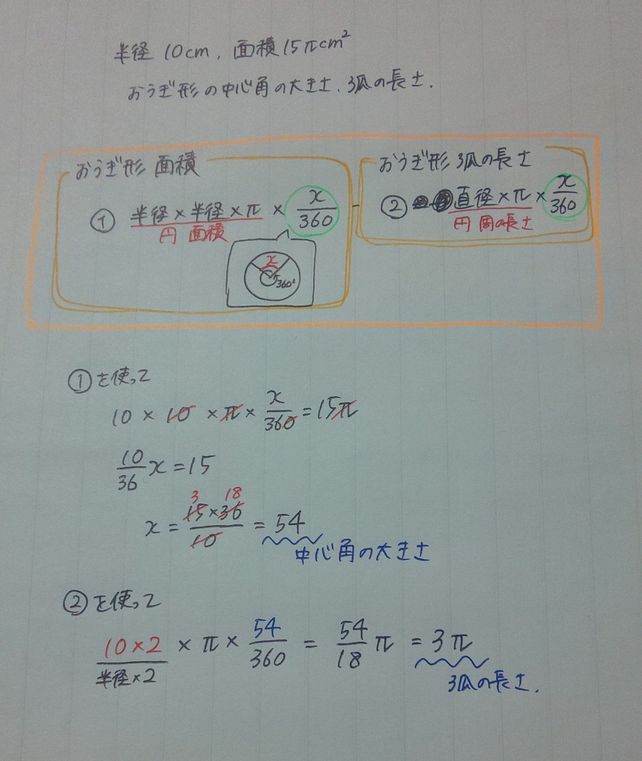 半径 10cm, 面積 15πcm²
おうぎ形の中心角の大きさ、弧の長さ.
おうぎ形 面積
① 半径×半径×π × x/360
円 面積
x
360°
おうぎ形 弧の長さ
② 直径×π × x/360
円周の長さ
①を使って
10 × 10 × π × x/360 = 15π
10/36 x = 15
3 18
x = 15×36/10 = 54
中心角の大きさ
②を使って
10×2 × π × 54/360 = 54/18 π = 3π
半径×2
弧の長さ.